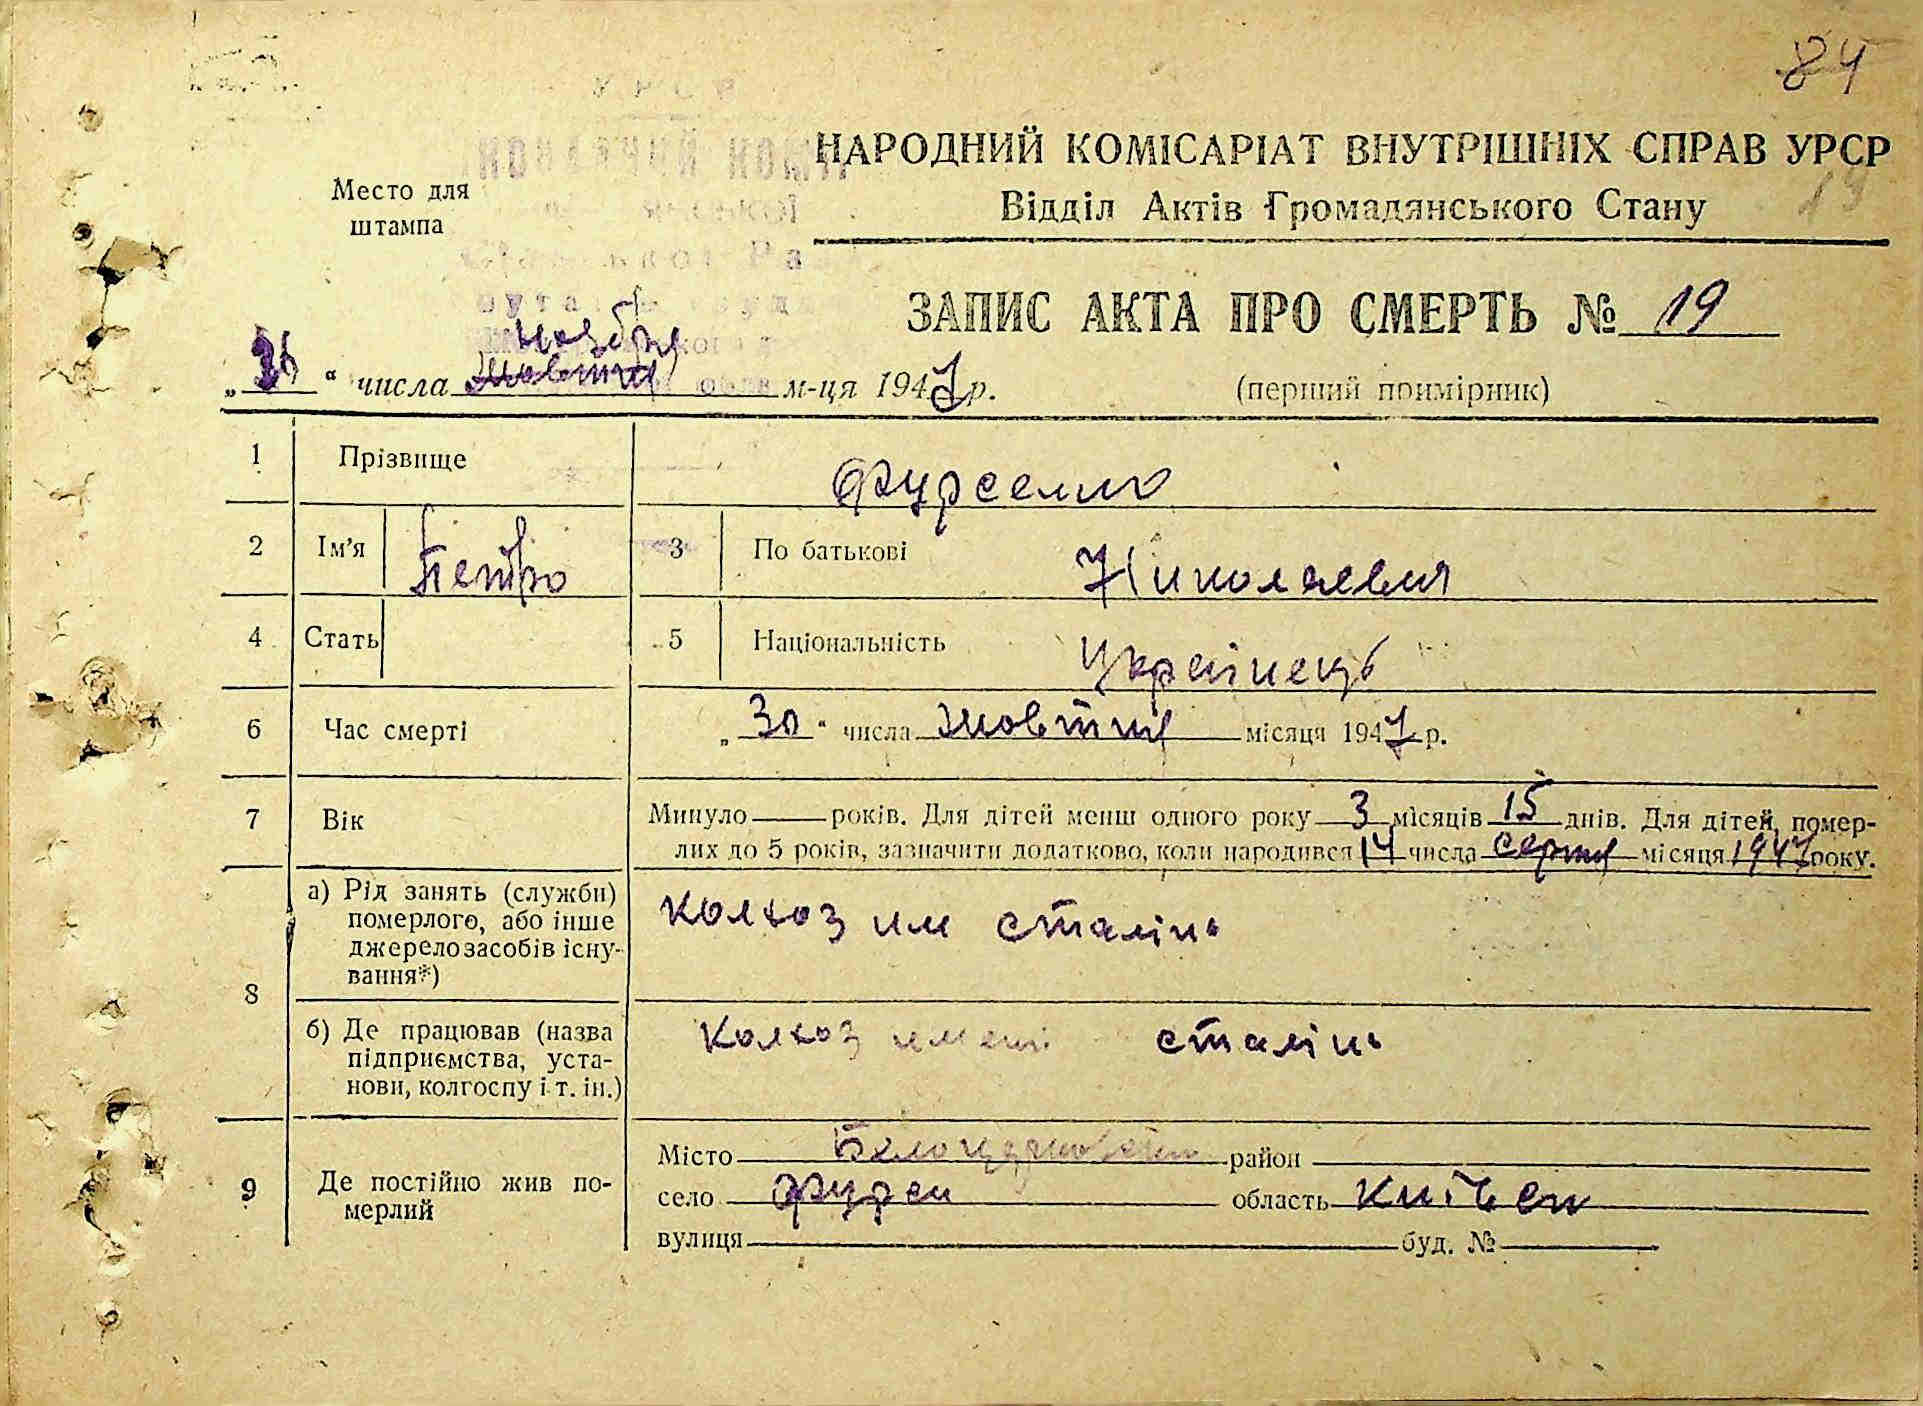 84
НАРОДНИЙ КОМІСАРІАТ ВНУТРІШНІХ СПРАВ УРСР
Место для
штампа
Відділ Актів Громадянського Стану
19
ЗАПИС АКТА ПРО СМЕРТЬ № 19
ноября
„ “ числа жовтня м-ця 1947 р.
(перший примірник)
1 Прізвище Фурсенко
2 Ім'я Петро 3 По батькові Николаевич
4 Стать 5 Національність Українець
6 Час смерті „30“ числа жовтня місяця 1947 р.
7 Вік Минуло років. Для дітей менш одного року 3 місяців 15 днів. Для дітей, помер-
лих до 5 років, зазначити додатково, коли народився 14 числа серпня місяця 1947 року.
8 а) Рід занять (служби)
померлого, або інше
джерело засобів існу-
вання*)
колхоз им сталін
б) Де працював (назва
підприємства, уста-
нови, колгоспу і т. ін.)
колхоз имені сталін
9 Де постійно жив по-
мерлий
Місто район
село Фурси область Київск
вулиця буд. №